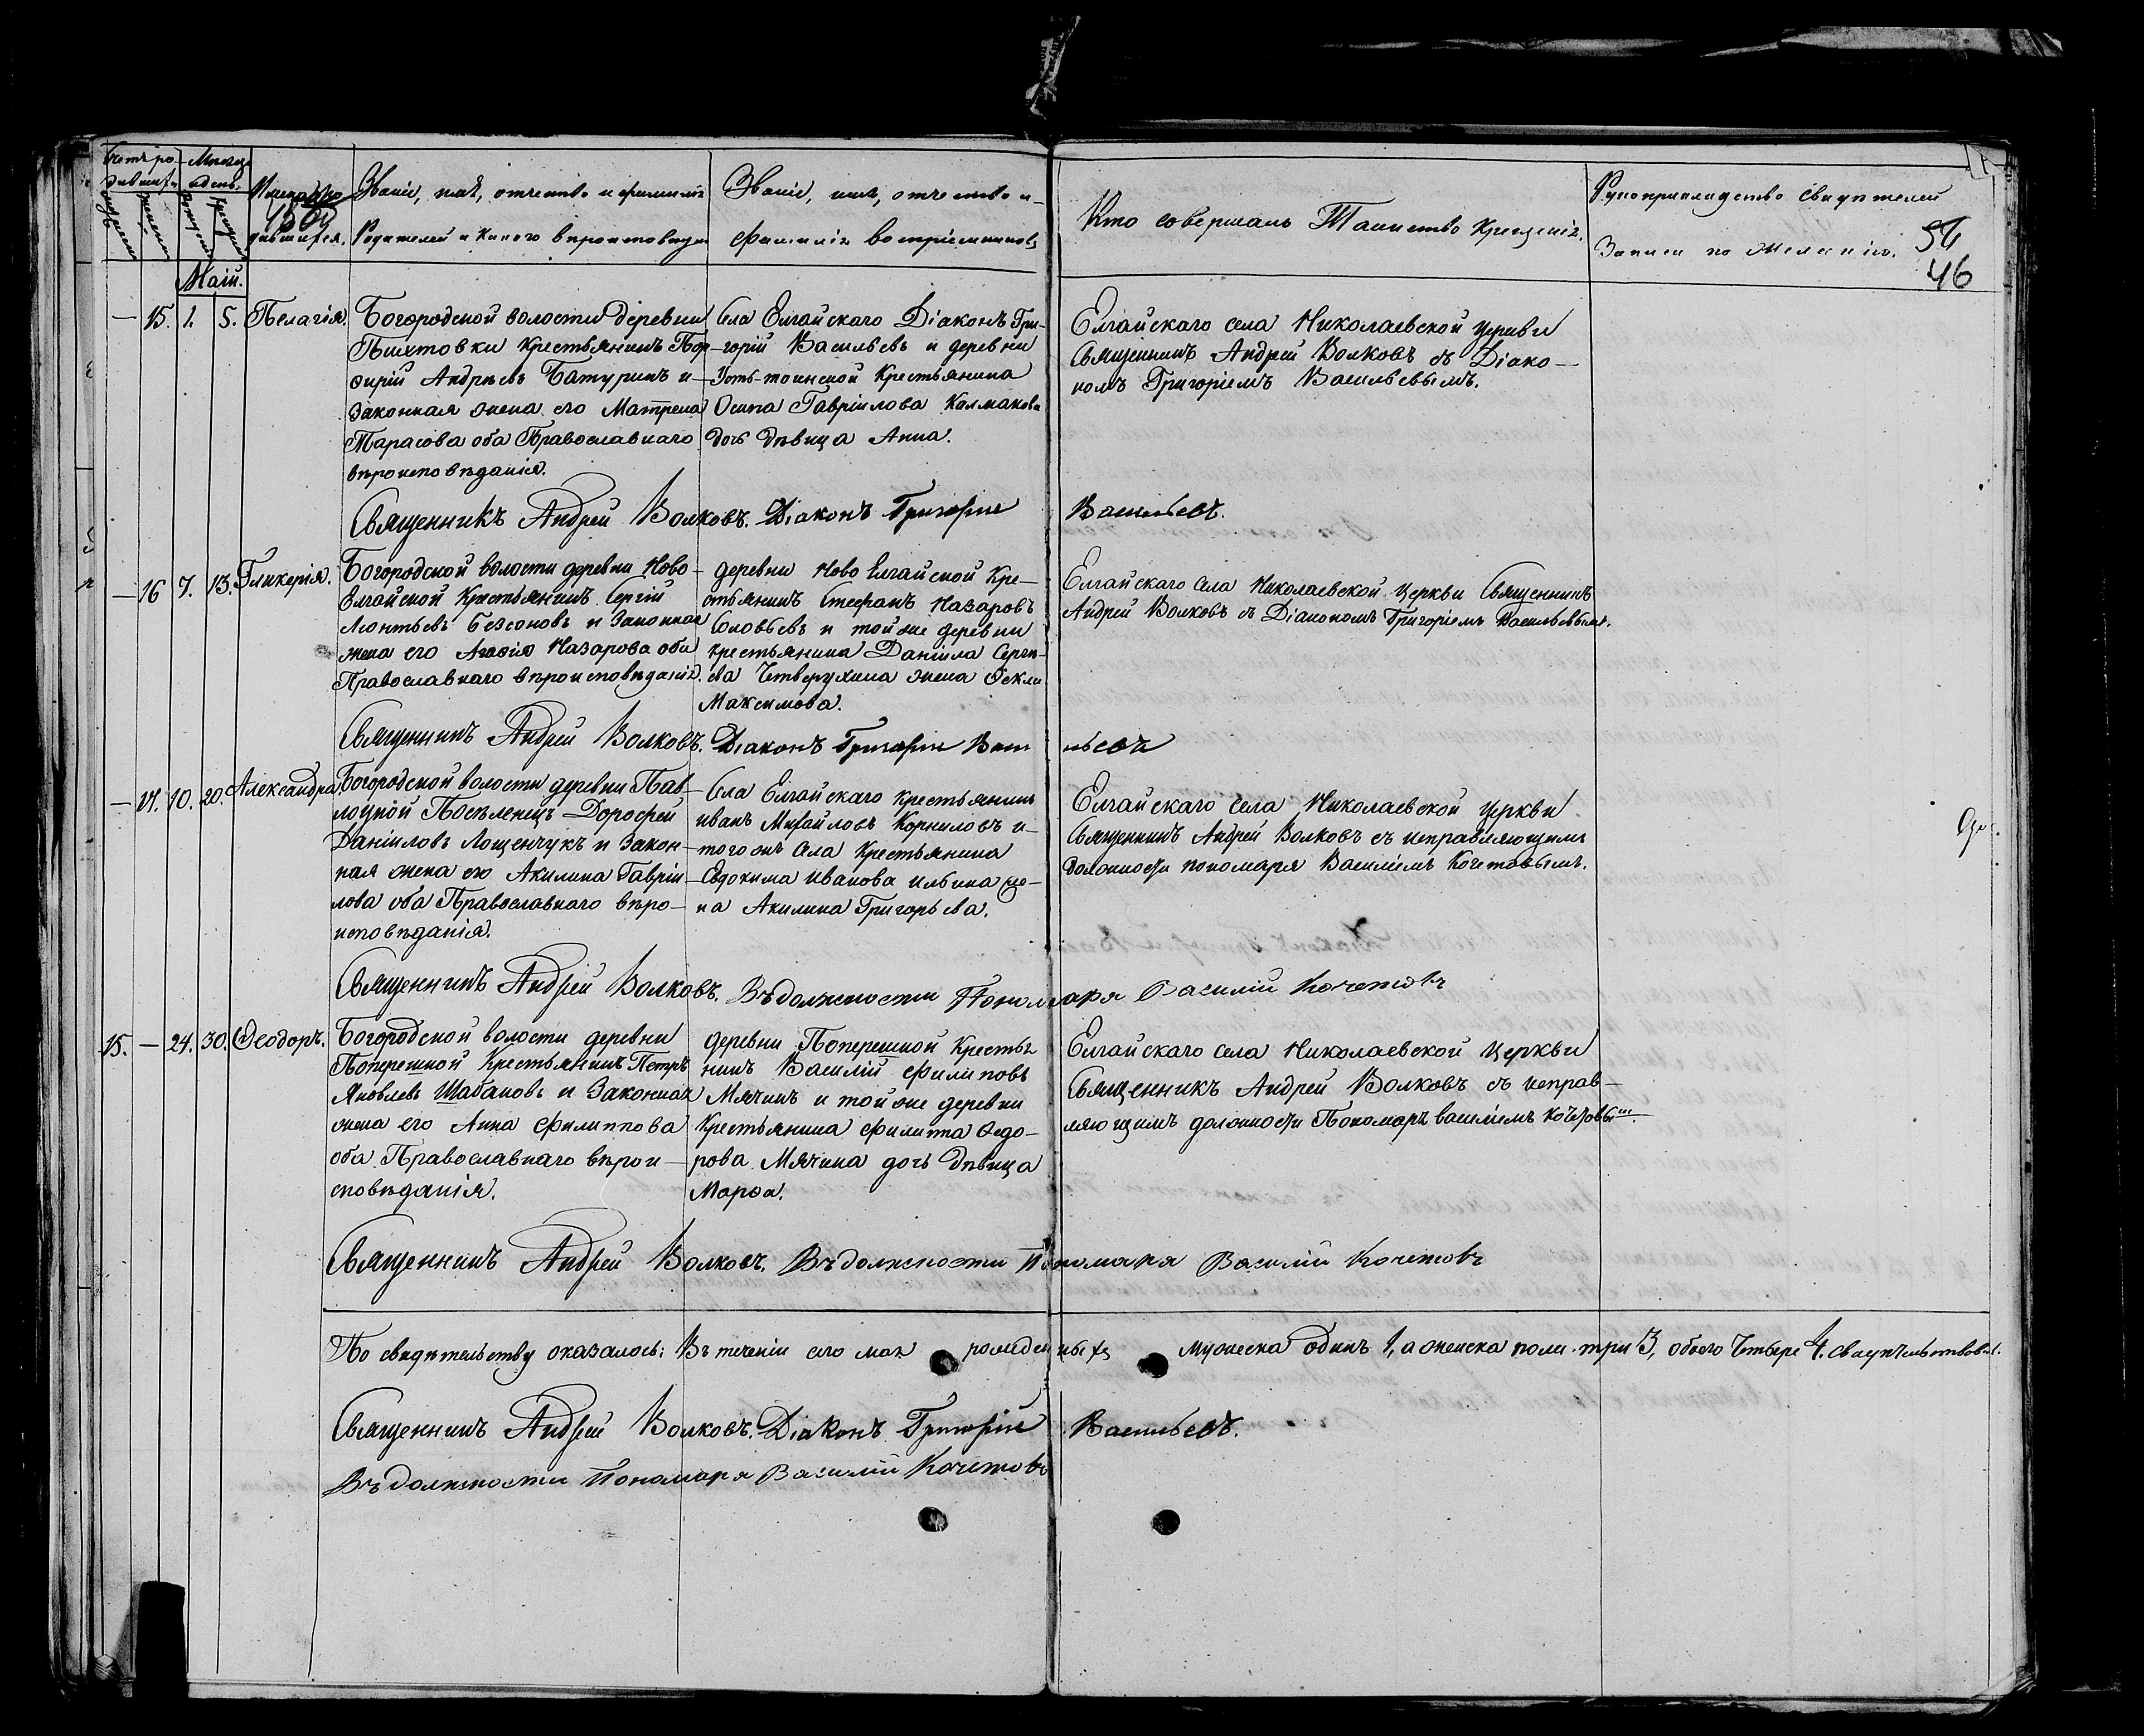 Счетъ ро-
дившихъ.
Мѣсяцъ
и день.
мужеска
женска
рожденія
крещенія
Имена ро-
дившихся.
Званіе, имя, отчество и фамилія
Родителей и какого вѣроисповѣд
Званіе, имя, отчество и
фамилія воспріемниковъ
Кто совершалъ Таинство Крещенія.
Рукоприкладство свидѣтелей
Записи по желанію.
46
Маій.
— 15. 1. 5. Пелагія.
Богородской волости деревни
Пихтовки Крестьянинъ Пор-
фирій Андреевъ Батуринъ и
Законная жена его Матрена
Тарасова оба Православнаго
вѣроисповѣданія.
Села Елгайскаго Діаконъ Гри-
горій Васильевъ и деревни
Усть-тоинской Крестьянина
Осипа Гавріилова Калмакова
дочь дѣвица Анна.
Елгайскаго села Николаевской церкви
Священникъ Андрей Волковъ съ Діако-
номъ Григоріемъ Васильевымъ.
Священникъ Андрей Волковъ. Діаконъ Григорій Васильевъ.
— 16 7. 13. Гликерія.
Богородской волости деревни Ново-
Елгайской Крестьянинъ Сергій
Леонтьевъ Безсоновъ и Законная
жена его Агафія Назарова оба
Православнаго вѣроисповѣданія.
деревни Ново Елгайской Кре-
стьянинъ Стефанъ Назаровъ
Соловьевъ и той же деревни
крестьянина Даніила Сергѣ-
ева Четверухина жена Ѳекла
Максимова.
Елгайскаго Села Николаевской Церкви Священникъ
Андрей Волковъ съ Діакономъ Григоріемъ Васильевымъ.
Священникъ Андрей Волковъ. Діаконъ Григорій Васильевъ
— 17. 10. 20. Александра
Богородской волости деревни Пав-
лоцкой Поселенецъ Дорофей
Даніиловъ Лощенчукъ и Закон-
ная жена его Акилина Гавріи-
лова оба Православнаго вѣро-
исповѣданія.
Села Елгайскаго Крестьянинъ
иванъ Михайловъ Корниловъ и
того жъ Села Крестьянина
Евдокима иванова ильина же-
на Акилина Григорьева.
Елгайскаго Села Николаевской Церкви
Священникъ Андрей Волковъ съ исправляющимъ
должность пономаря Василіемъ Кочетовымъ.
Священникъ Андрей Волковъ. Въ должности Пономаря Василій Кочетовъ
15. — 24. 30. Ѳеодоръ.
Богородской волости деревни
Поперешной Крестьянинъ Петръ
Яковлевъ Шабановъ и Законная
жена его Анна Филиппова
оба Православнаго вѣрои-
сповѣданія.
деревни Поперешной Крестья
нинъ Василій Филиповъ
Мячинъ и той же деревни
Крестьянина Филипа Ѳедо-
рова Мячина дочь дѣвица
Марѳа.
Елгайскаго Села Николаевской Церкви
Священникъ Андрей Волковъ съ исправ-
ляющимъ должность Пономаря василіемъ Кочетовымъ.
Священникъ Андрей Волковъ. Въ должности Пономаря Василій Кочетовъ
По свидѣтельству оказалось: Въ теченіи сего мая рожденныхъ мужеска одинъ 1, а женска пола три 3, обоего Четыре 4. свидѣтельствовал.
Священникъ Андрей Волковъ. Діаконъ Григорій Васильевъ.
Въ должности Пономаря Василій Кочетовъ